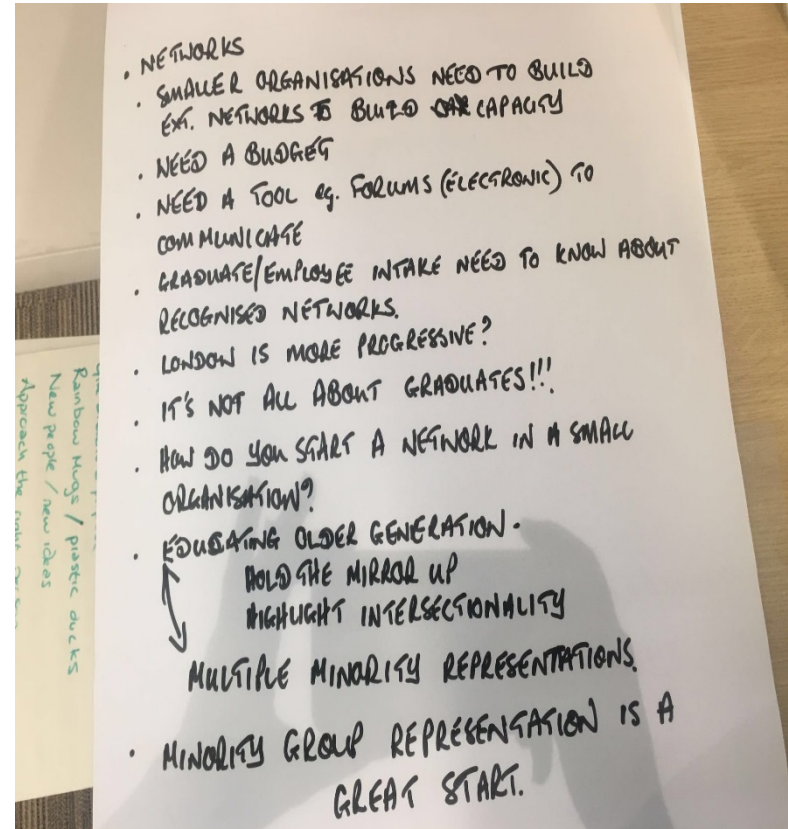 . NETWORKS
. SMALLER ORGANISATIONS NEED TO BUILD
EXT. NETWORKS TO BUILD CAPACITY
. NEED A BUDGET
. NEED A TOOL eg. FORUMS (ELECTRONIC) TO
COMMUNICATE
. GRADUATE/EMPLOYEE INTAKE NEED TO KNOW ABOUT
RECOGNISED NETWORKS.
. LONDON IS MORE PROGRESSIVE?
. IT'S NOT ALL ABOUT GRADUATES!!!
. HOW DO YOU START A NETWORK IN A SMALL
ORGANISATION?
. EDUCATING OLDER GENERATION.
HOLD THE MIRROR UP
HIGHLIGHT INTERSECTIONALITY
MULTIPLE MINORITY REPRESENTATIONS.
. MINORITY GROUP REPRESENTATION IS A
GREAT START.
Rainbow Mugs / plastic ducks
New people / new ideas
Approach the right